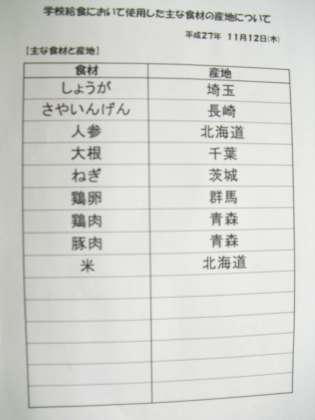 学校給食において使用した主な食材の産地について
平成27年 11月12日(木)
[主な食材と産地]
食材 産地
しょうが 埼玉
さやいんげん 長崎
人参 北海道
大根 千葉
ねぎ 茨城
鶏卵 群馬
鶏肉 青森
豚肉 青森
米 北海道